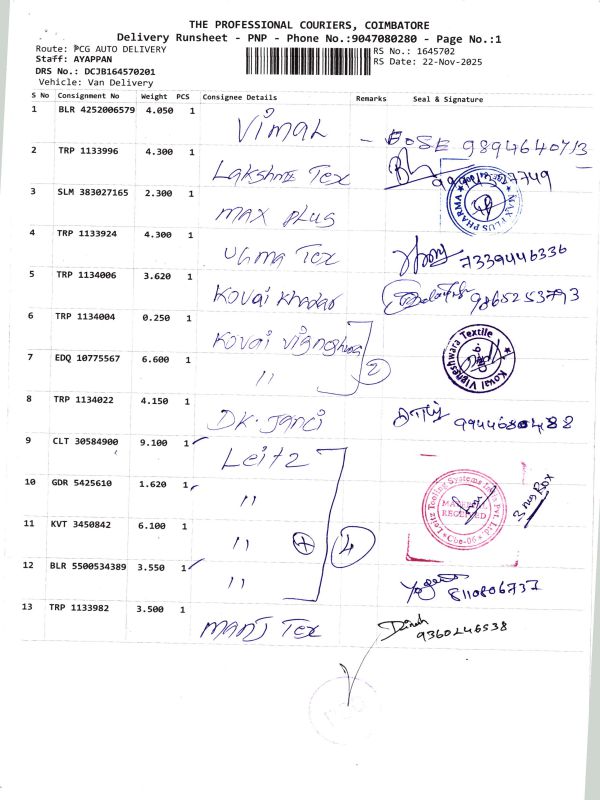 THE PROFESSIONAL COURIERS, COIMBATORE
Delivery Runsheet - PNP - Phone No.:9047080280 - Page No.:1
Route: PCG AUTO DELIVERY RS No.: 1645702
Staff: AYAPPAN RS Date: 22-Nov-2025
DRS No.: DCJB164570201
Vehicle: Van Delivery
S No Consignment No Weight PCS Consignee Details Remarks Seal & Signature
1 BLR 4252006579 4.050 1 Vimal - BOSE 9894640713
2 TRP 1133996 4.300 1 Lakshmi Tex
3 SLM 383027165 2.300 1 Max plus MAX PLUS PHARMA
4 TRP 1133924 4.300 1 Uma Tex 7339446336
5 TRP 1134006 3.620 1 Kovai Khadar 9865253793
6 TRP 1134004 0.250 1 Kovai Vignesh Kovai Vigneshwara Textile
7 EDQ 10775567 6.600 1 " 2
8 TRP 1134022 4.150 1 DK. Janci 9944680488
9 CLT 30584900 9.100 1 Leitz
10 GDR 5425610 1.620 1 " Leitz Tooling Systems India Pvt. Ltd. MATERIAL RECEIVED Cbe-06 3 nos Box
11 KVT 3450842 6.100 1 " + 4
12 BLR 5500534389 3.550 1 " 8110806737
13 TRP 1133982 3.500 1 Manj Tex Dinesh 9360246538